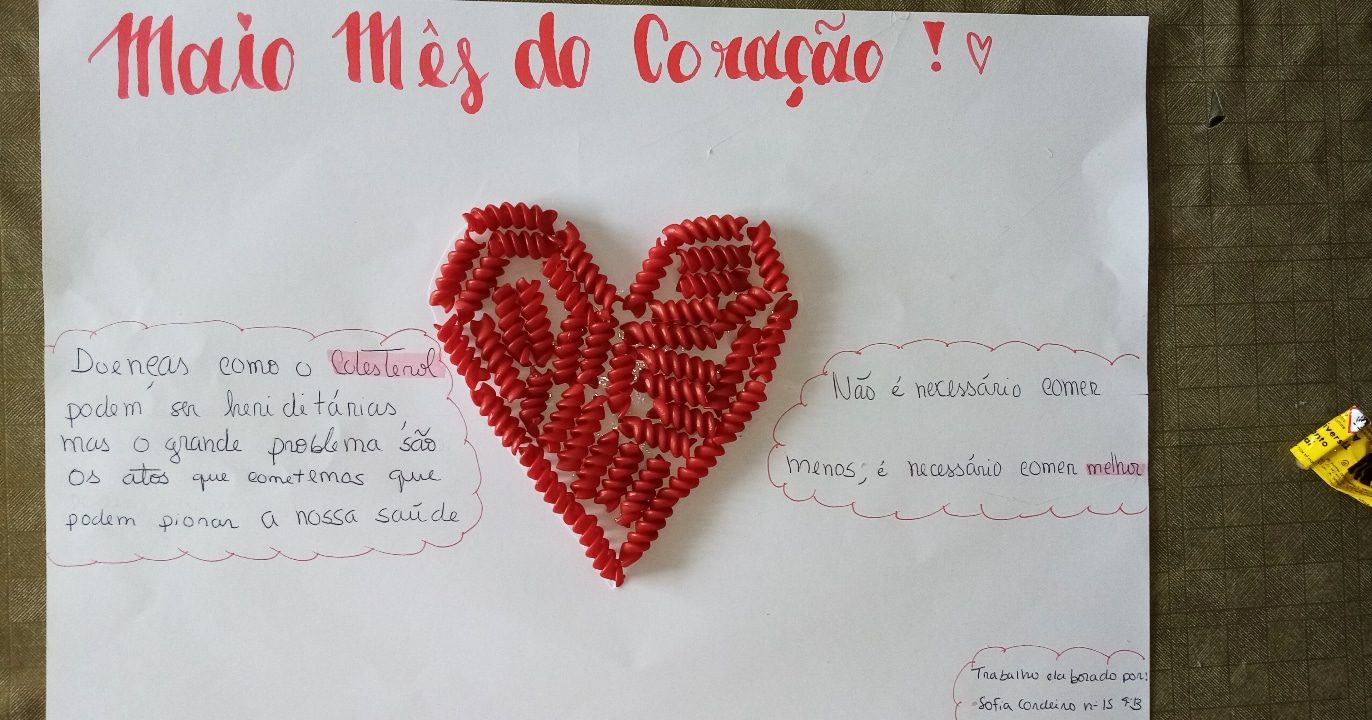 Maio Mês do Coração!
Doenças como o Colesterol
podem ser heriditárias,
mas o grande problema são
os atos que cometemos que
podem piorar a nossa saúde
Não é necessário comer
menos, é necessário comer melhor
Trabalho elaborado por:
Sofia Cordeiro nº15